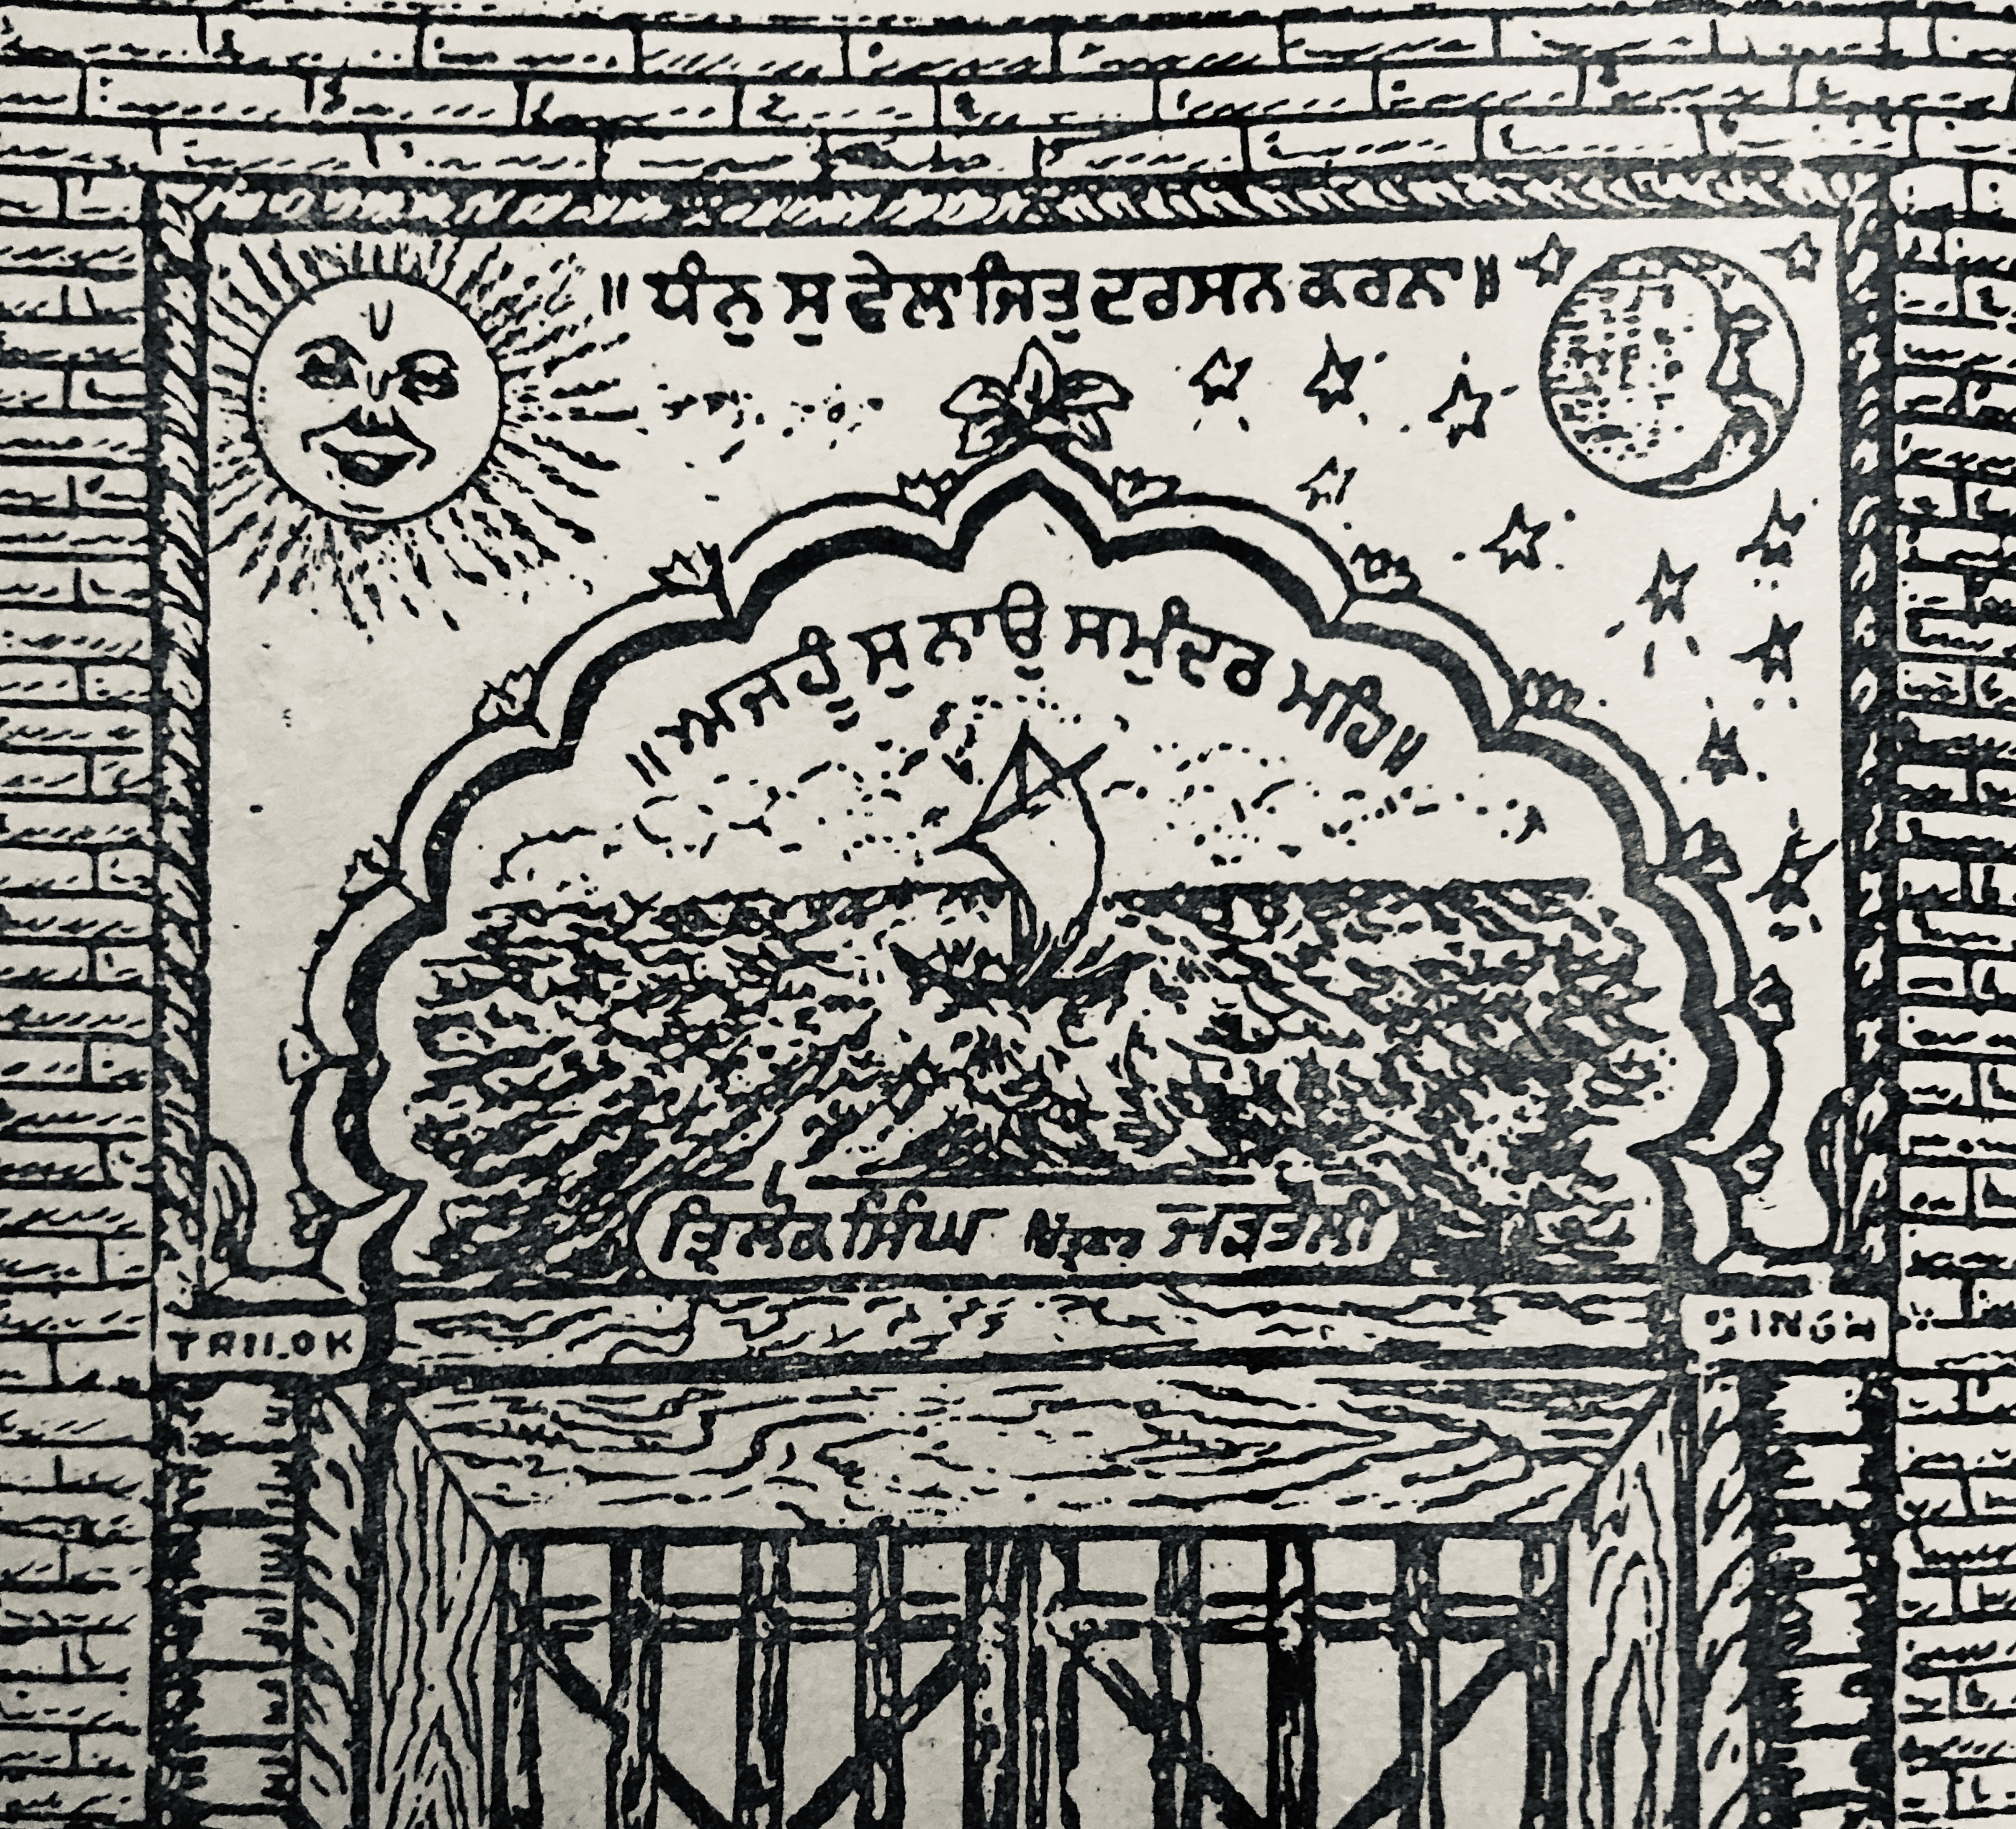 ॥ ਧੰਨੁ ਸੁ ਵੇਲਾ ਜਿਤੁ ਦਰਸਨ ਕਰਨਾ ॥
॥ ਅਜਹੁੰ ਸੁ ਨਾਉ ਸਮੁੰਦਰ ਮਹਿ ॥
ਤ੍ਰਿਲੋਕ ਸਿੰਘ
TRILOK SINGH